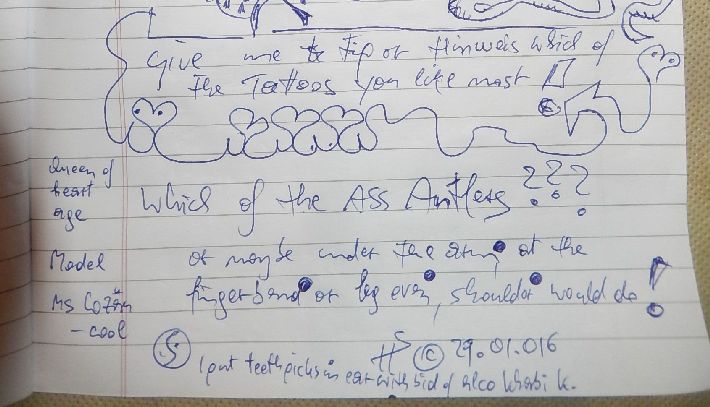 Give me tip or Hinweis which of
the Tattoos you like most
Queen of
heart
age
which of the ASS Antlers ???
Model
or maybe under the arm, or the
Ms
- cool
finger or leg even, shoulder would do !
S
HS © 29.01.016
I put teethpicks in ear with bid of alco